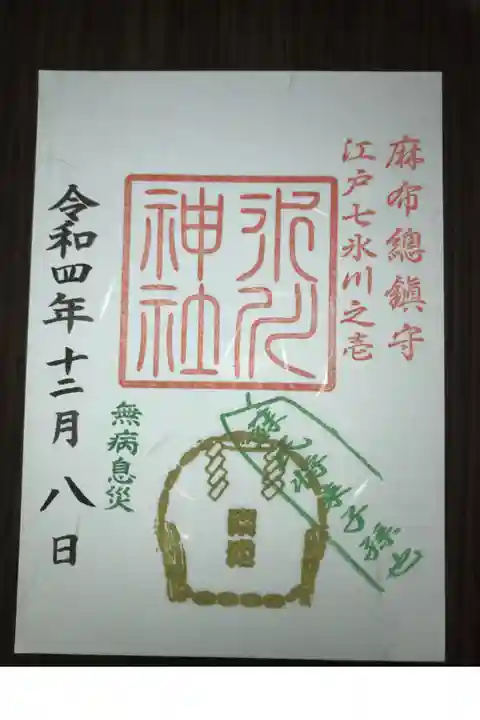 麻布總鎮守
江戸七氷川之壱
氷川
神社
無病息災
令和四年十二月八日